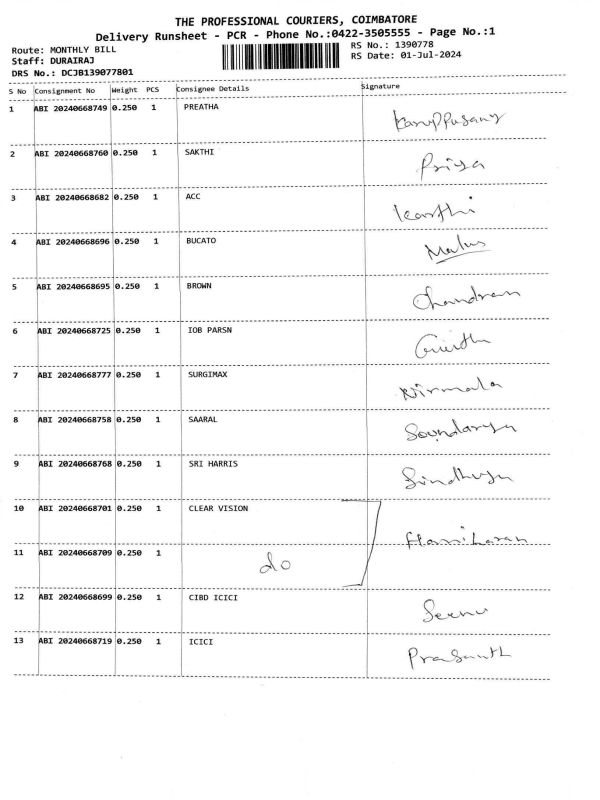 THE PROFESSIONAL COURIERS, COIMBATORE
Delivery Runsheet - PCR - Phone No.:0422-3505555 - Page No.:1
Route: MONTHLY BILL RS No.: 1390778
Staff: DURAIRAJ RS Date: 01-Jul-2024
DRS No.: DCJB139077801
S No Consignment No Weight PCS Consignee Details Signature
1 ABI 20240668749 0.250 1 PREATHA
Karuppusamy
2 ABI 20240668760 0.250 1 SAKTHI
Priya
3 ABI 20240668682 0.250 1 ACC
Karthi
4 ABI 20240668696 0.250 1 BUCATO
5 ABI 20240668695 0.250 1 BROWN
Chandran
6 ABI 20240668725 0.250 1 IOB PARSN
7 ABI 20240668777 0.250 1 SURGIMAX
Nirmala
8 ABI 20240668758 0.250 1 SAARAL
Soundarya
9 ABI 20240668768 0.250 1 SRI HARRIS
Sindhuja
10 ABI 20240668701 0.250 1 CLEAR VISION
Hariharan
11 ABI 20240668709 0.250 1
do
12 ABI 20240668699 0.250 1 CIBD ICICI
Seenu
13 ABI 20240668719 0.250 1 ICICI
Prasanth